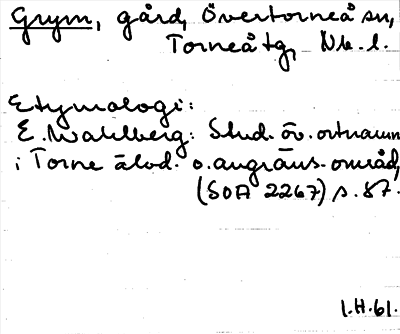 Grym, gård, Övertorneå sn,
Torneå tg, Nb. l.
Etymologi:
E. Wahlberg: Stud. öv. ortnamn
i Torne älvd. o. angräns. områd,
(SOA 2267) s. 87.
I.H.61.